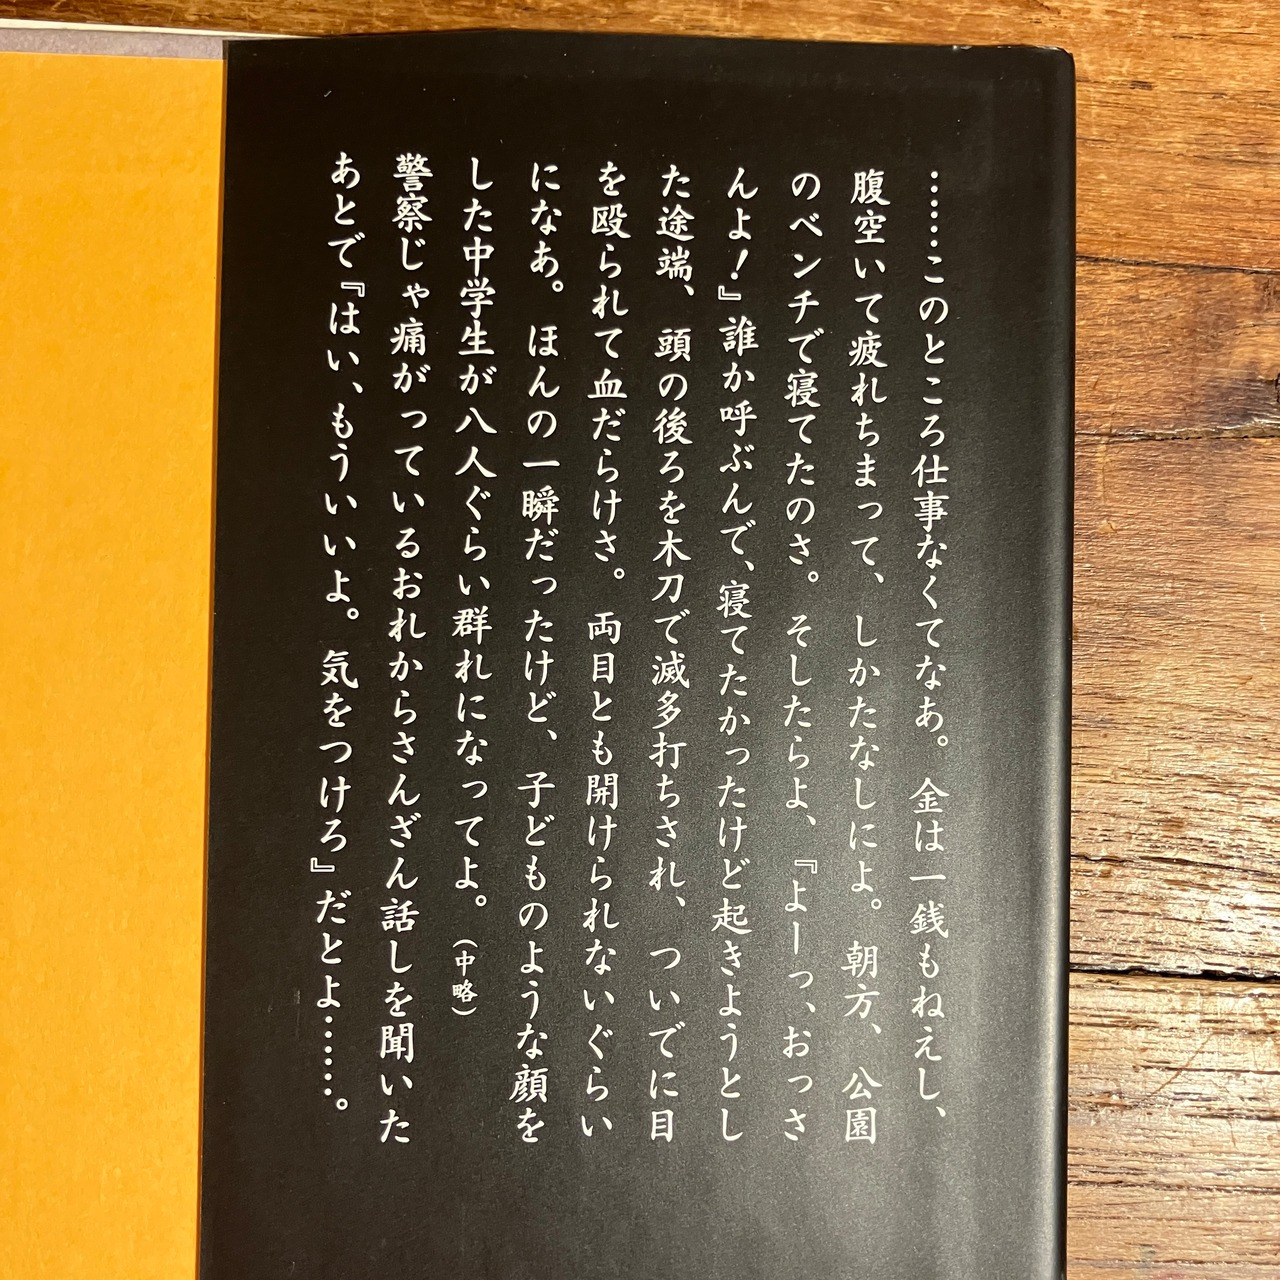 ……このところ仕事なくてなあ。金は一銭もねえし、
腹空いて疲れちまって、しかたなしによ。朝方、公園
のベンチで寝てたのさ。そしたらよ、『よーっ、おっさ
んよ！』誰か呼ぶんで、寝てたかったけど起きようとし
た途端、頭の後ろを木刀で滅多打ちされ、ついでに目
を殴られて血だらけさ。両目とも開けられないぐらい
になあ。ほんの一瞬だったけど、子どものような顔を
した中学生が八人ぐらい群れになってよ。（中略）
警察じゃ痛がっているおれからさんざん話しを聞いた
あとで『はい、もういいよ。気をつけろ』だとよ……。